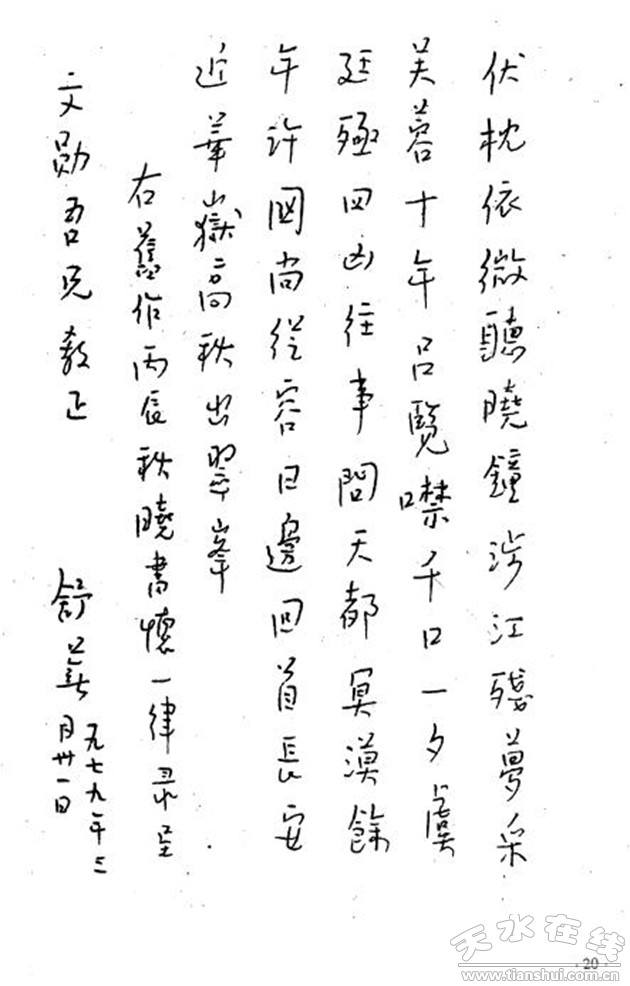 伏枕依微聽曉鐘涉江殘夢采
芙蓉十年呂覽噤千口一夕虞
廷殛四凶往事問天都冥漠餘
年許國尚從容日邊回首長安
近華嶽高秋出翠峯
右舊作丙辰秋曉書懷一律录呈
文勛吾兄教正
舒蕪 一九七九年三
月卅一日
·20·
天水在线
www.tianshui.com.cn